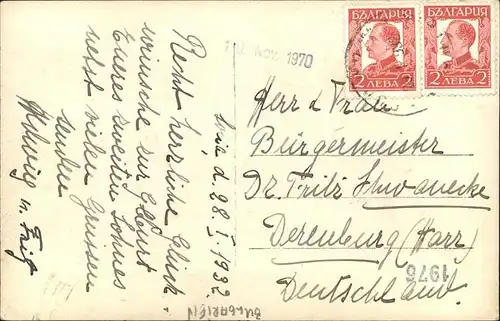 БЪЛГАРИЯ
2 ЛЕВА 2
БЪЛГАРИЯ
2 ЛЕВА 2
NOV. 1970
d. 28. I. 1932.
Recht herzliche Glück-
wünsche zur Geburt
Eueres zweiten Sohnes
nebst vielen Grüssen
senden
Helwig u.
Herr u. Frau
Bürgermeister
Dr. Fritz Schwanecke
Derenburg (Harz)
Deutschland.
1976
BULGARIEN